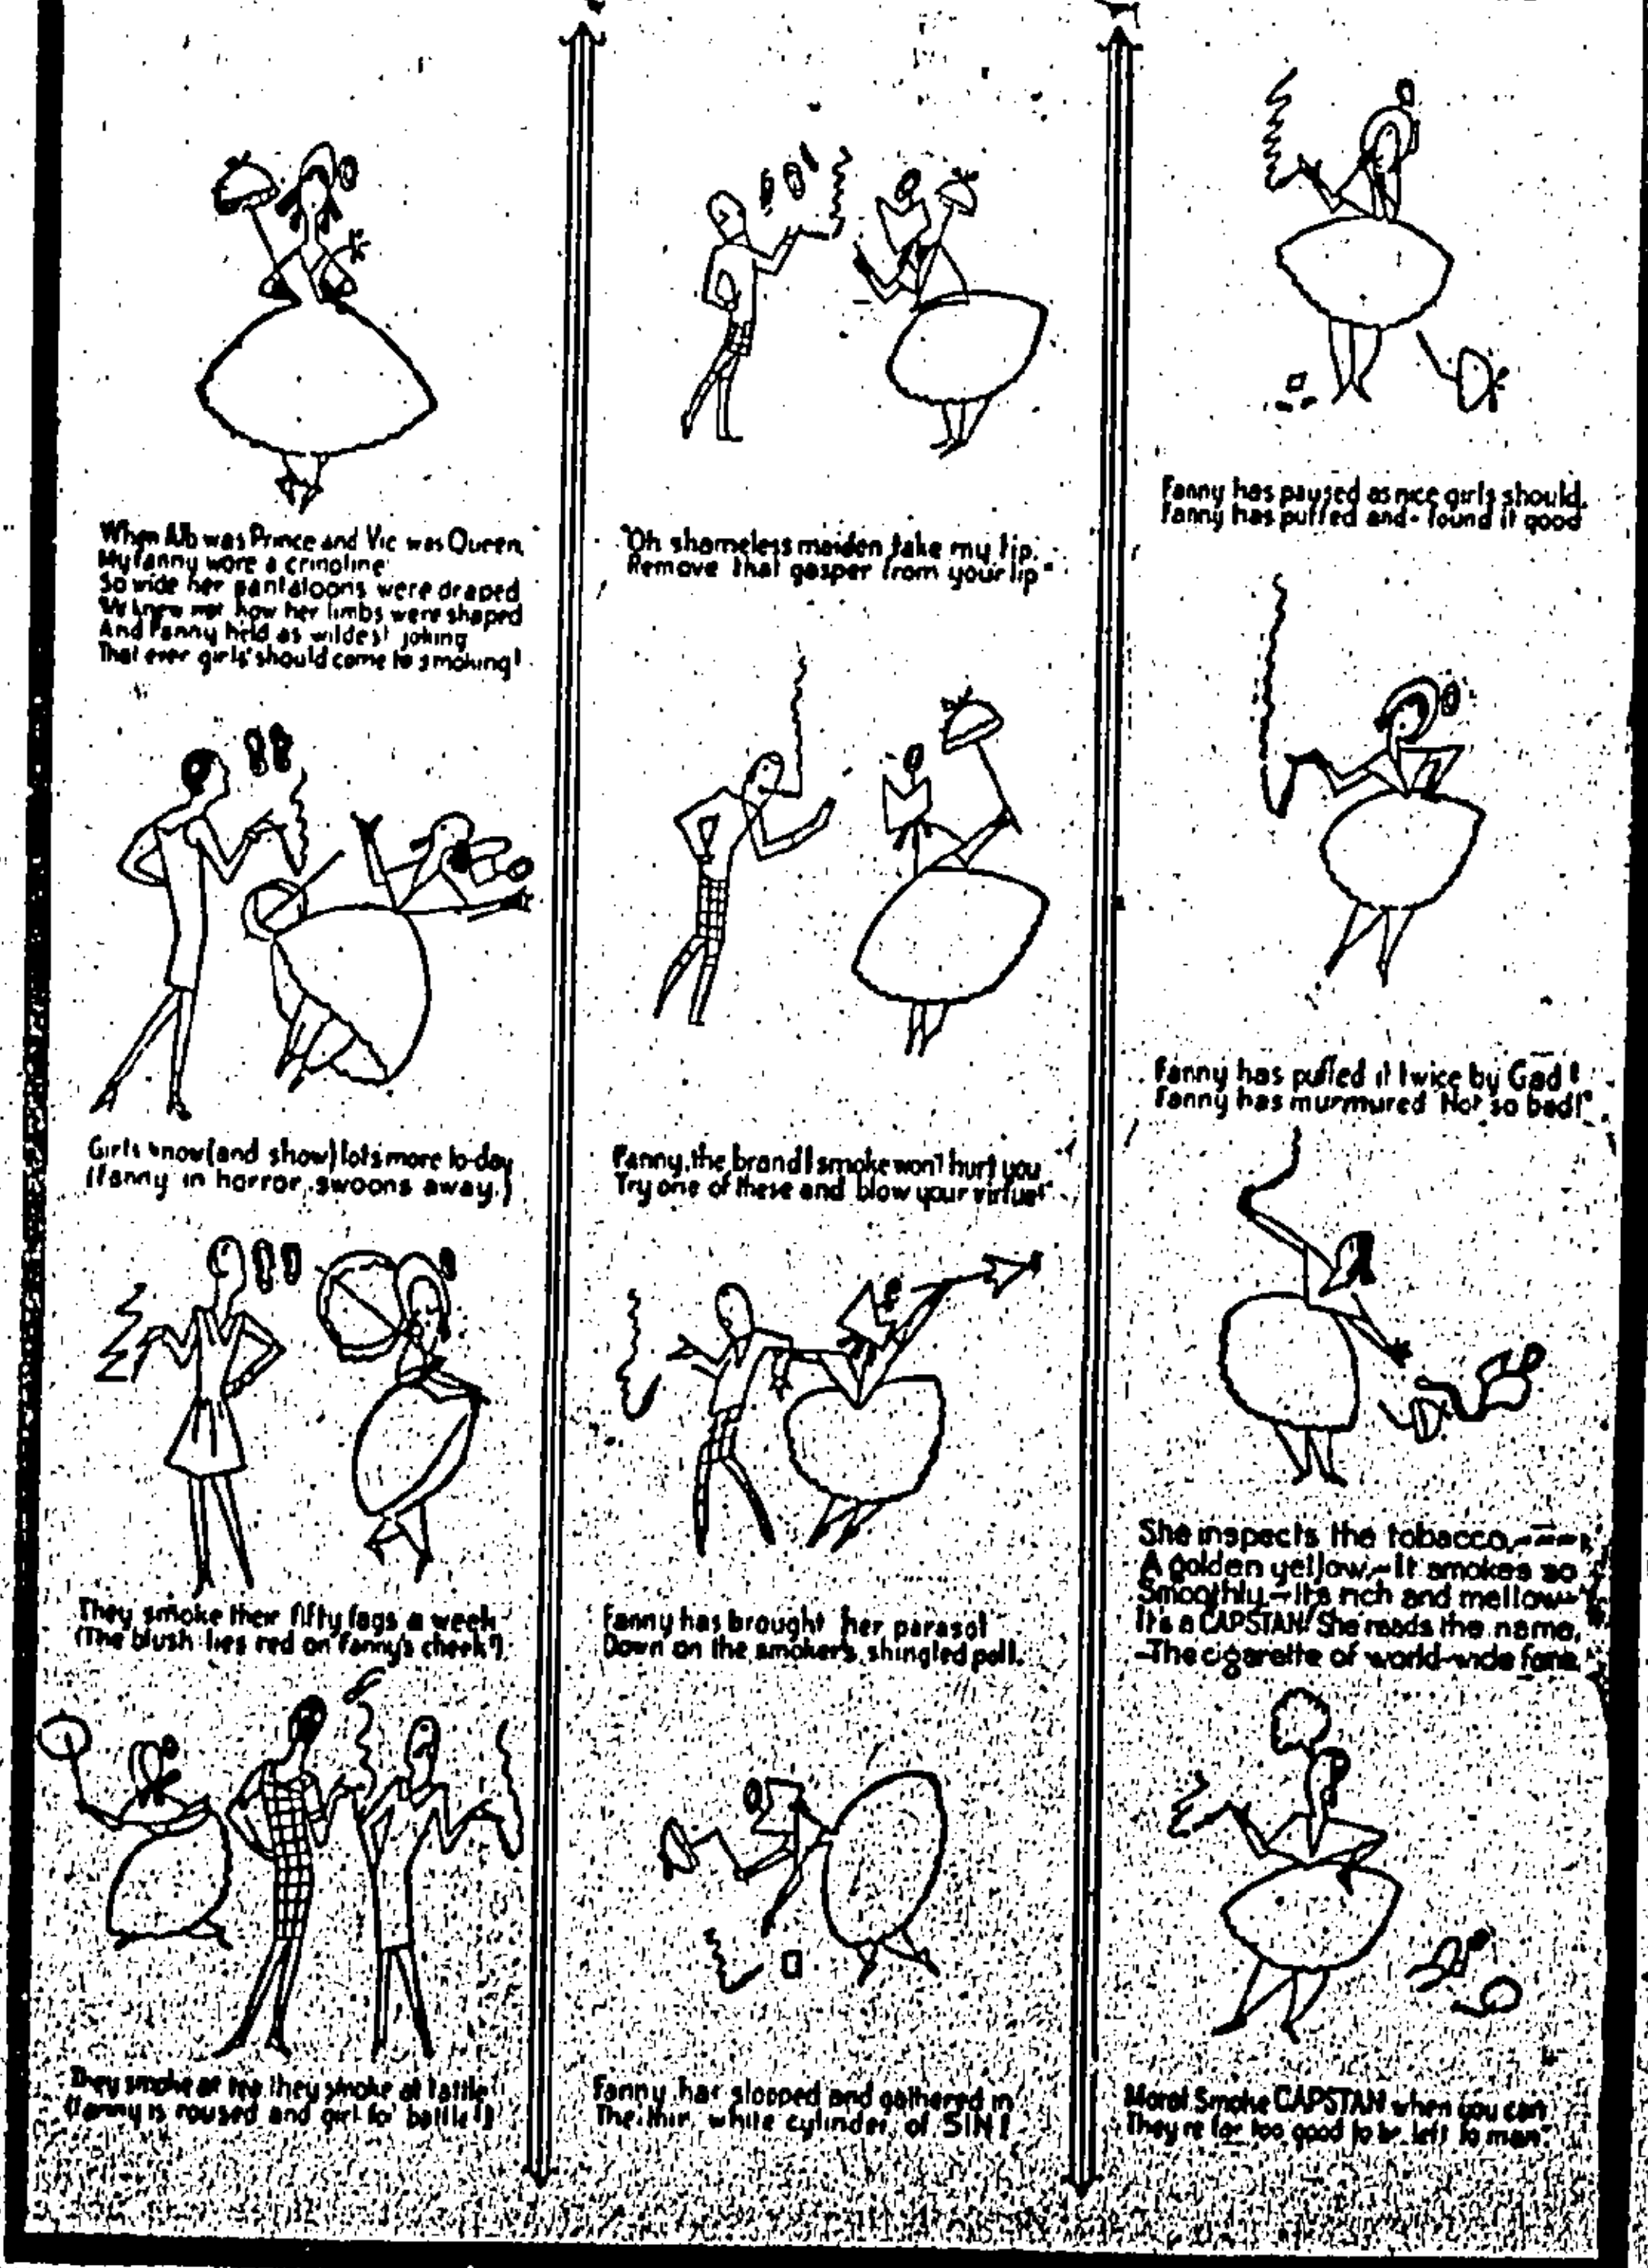 When Alb was Prince and Vic was Queen,
My Fanny wore a crinoline
So wide her pantaloons were draped
We knew not how her limbs were shaped
And Fanny held as wildest joking
That ever girls should come to smoking!
Girls know (and show) lots more to-day
(Fanny in horror, swoons away.)
They smoke their fifty fags a week
(The blush lies red on Fanny's cheek.)
They smoke at tea they smoke at tattle
(Fanny is roused and girt for battle!)
"Oh shameless maiden take my tip,
Remove that gasper from your lip"
Fanny, the brand I smoke won't hurt you
Try one of these and blow your virtue!"
Fanny has brought her parasol
Down on the smoker's shingled poll.
Fanny has stooped and gathered in
The thin, white cylinder, of SIN!
Fanny has paused as nice girls should,
Fanny has puffed and - found it good
Fanny has puffed it twice by Gad!
Fanny has murmured "Not so bad!"
She inspects the tobacco,
A golden yellow,-It smokes so
Smoothly,-Its rich and mellow
It's a CAPSTAN! She reads the name,
-The cigarette of world-wide fame.
Moral Smoke CAPSTAN when you can
They're far too good to be left to man"